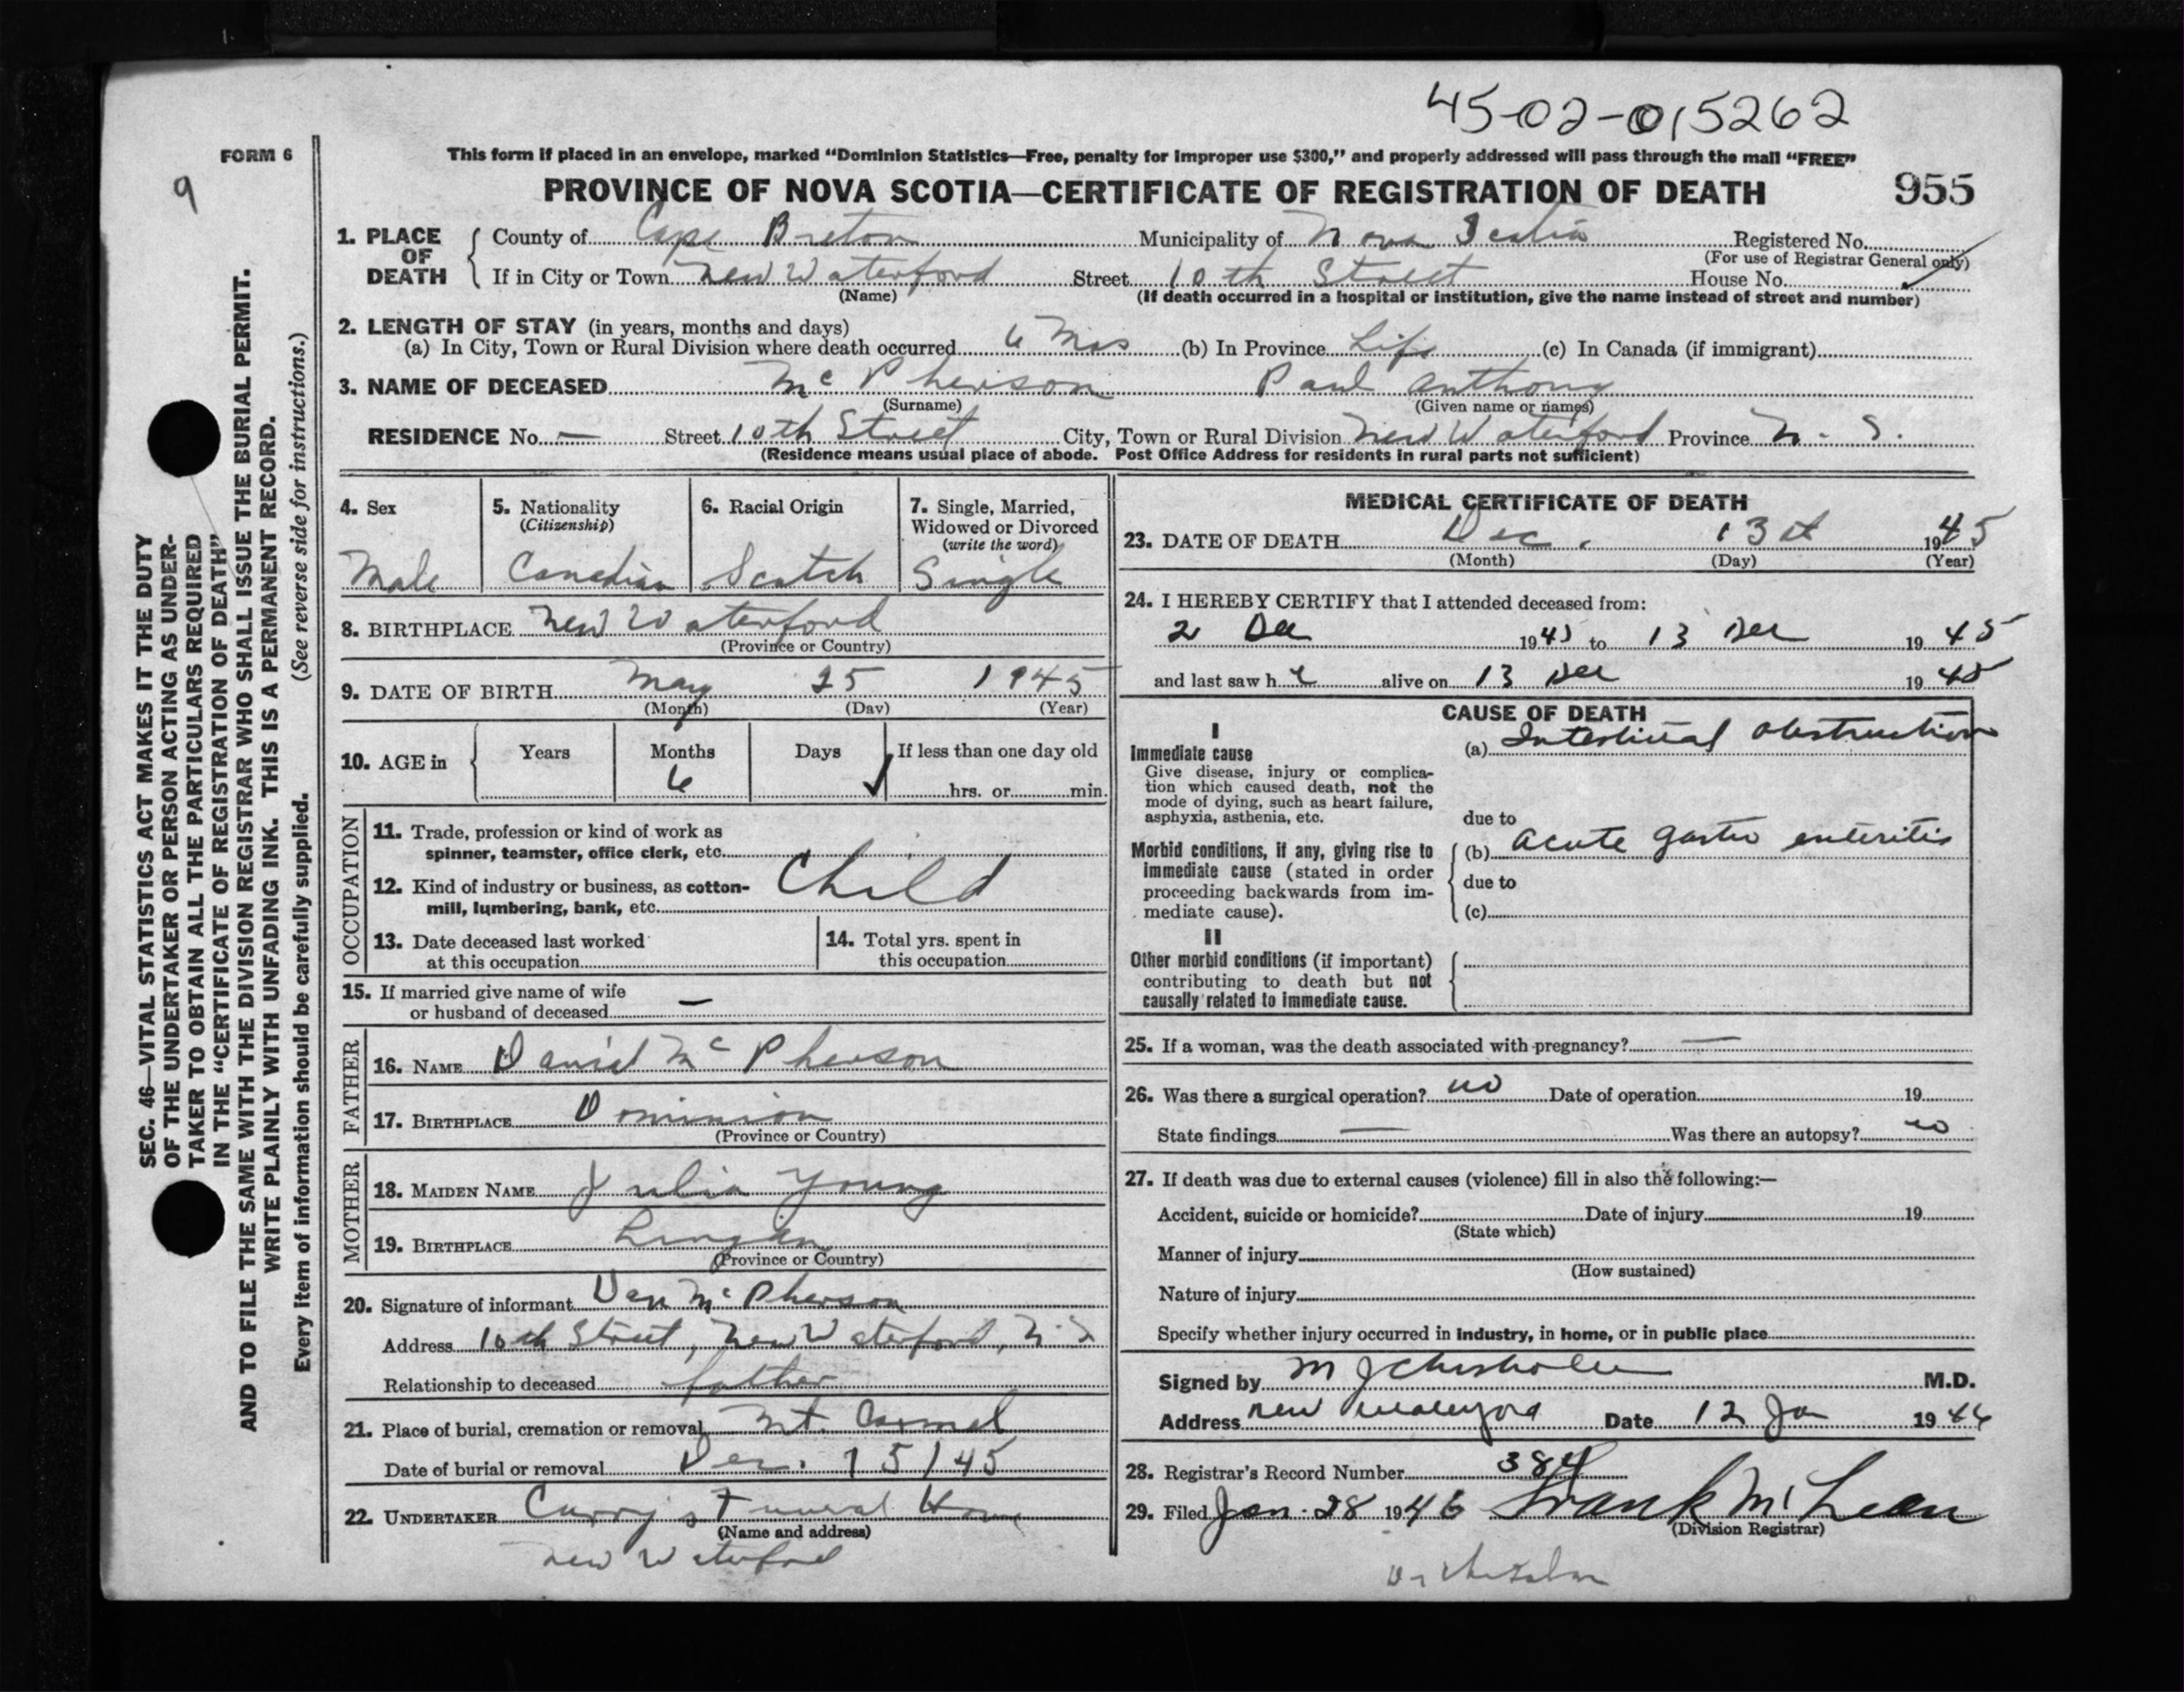 45-02-015262
FORM 6
9
This form if placed in an envelope, marked “Dominion Statistics—Free, penalty for improper use $300,” and properly addressed will pass through the mail “FREE”
PROVINCE OF NOVA SCOTIA—CERTIFICATE OF REGISTRATION OF DEATH 955
1. PLACE OF DEATH County of Cape Breton Municipality of Nova Scotia Registered No.
(For use of Registrar General only)
If in City or Town New Waterford Street 10th Street House No.
(Name) (If death occurred in a hospital or institution, give the name instead of street and number)
2. LENGTH OF STAY (in years, months and days)
(a) In City, Town or Rural Division where death occurred 6 Mos (b) In Province Life (c) In Canada (if immigrant)
3. NAME OF DECEASED McPherson Paul Anthony
(Surname) (Given name or names)
RESIDENCE No. — Street 10th Street City, Town or Rural Division New Waterford Province N. S.
(Residence means usual place of abode. Post Office Address for residents in rural parts not sufficient)
SEC. 46—VITAL STATISTICS ACT MAKES IT THE DUTY
OF THE UNDERTAKER OR PERSON ACTING AS UNDER-
TAKER TO OBTAIN ALL THE PARTICULARS REQUIRED
IN THE “CERTIFICATE OF REGISTRATION OF DEATH”
AND TO FILE THE SAME WITH THE DIVISION REGISTRAR WHO SHALL ISSUE THE BURIAL PERMIT.
WRITE PLAINLY WITH UNFADING INK. THIS IS A PERMANENT RECORD.
Every item of information should be carefully supplied. (See reverse side for instructions.)
4. Sex
Male
5. Nationality
(Citizenship)
Canadian
6. Racial Origin
Scotch
7. Single, Married,
Widowed or Divorced
(write the word)
Single
8. BIRTHPLACE New Waterford
(Province or Country)
9. DATE OF BIRTH May 25 1945
(Month) (Day) (Year)
10. AGE in Years Months Days If less than one day old
6 hrs. or min.
OCCUPATION
11. Trade, profession or kind of work as
spinner, teamster, office clerk, etc.
Child
12. Kind of industry or business, as cotton-
mill, lumbering, bank, etc.
13. Date deceased last worked
at this occupation
14. Total yrs. spent in
this occupation
15. If married give name of wife
or husband of deceased —
FATHER
16. NAME Daniel McPherson
17. BIRTHPLACE Dominion
(Province or Country)
MOTHER
18. MAIDEN NAME Julia Young
19. BIRTHPLACE Lingan
(Province or Country)
20. Signature of informant Dan McPherson
Address 10th Street, New Waterford, N.S
Relationship to deceased father
21. Place of burial, cremation or removal Mt. Carmel
Date of burial or removal Dec. 15/45
22. UNDERTAKER Curry's Funeral Home
(Name and address)
New Waterford
MEDICAL CERTIFICATE OF DEATH
23. DATE OF DEATH Dec. 13th 1945
(Month) (Day) (Year)
24. I HEREBY CERTIFY that I attended deceased from:
2 Dec 1945 to 13 Dec 1945
and last saw h alive on 13 Dec 1945
CAUSE OF DEATH
I
Immediate cause
Give disease, injury or complica-
tion which caused death, not the
mode of dying, such as heart failure,
asphyxia, asthenia, etc.
(a) Intestinal obstruction
due to
Morbid conditions, if any, giving rise to
immediate cause (stated in order
proceeding backwards from im-
mediate cause).
(b) acute gastro enteritis
due to
(c)
II
Other morbid conditions (if important)
contributing to death but not
causally related to immediate cause.
25. If a woman, was the death associated with pregnancy? —
26. Was there a surgical operation? no Date of operation 19
State findings — Was there an autopsy? no
27. If death was due to external causes (violence) fill in also the following:—
Accident, suicide or homicide? Date of injury 19
(State which)
Manner of injury
(How sustained)
Nature of injury
Specify whether injury occurred in industry, in home, or in public place
Signed by M J Chisholm M.D.
Address New Waterford Date 12 Jan 1946
28. Registrar's Record Number 384
29. Filed Jan. 28 1946 Frank McLean
(Division Registrar)
Dr Chisholm